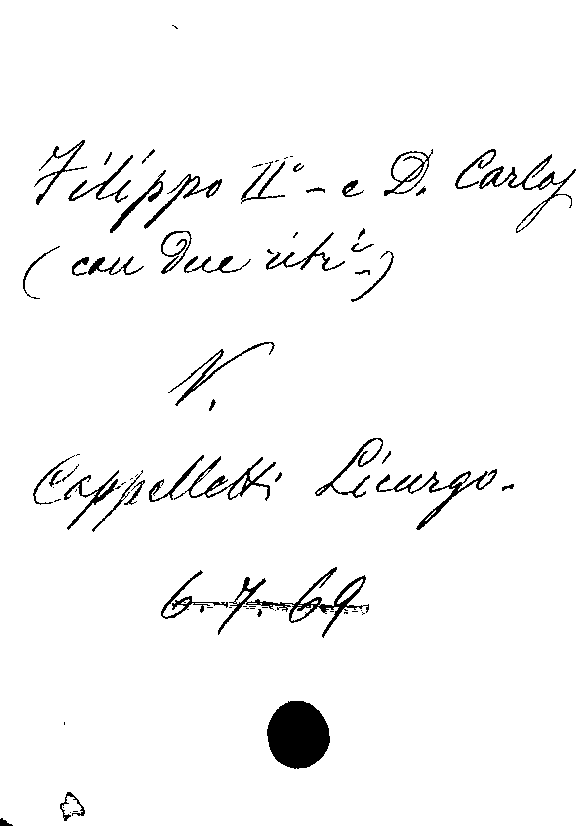 Filippo II° - e D. Carlos
(con due ritr.i)
V.
Cappelletti Licurgo.
6.7.69